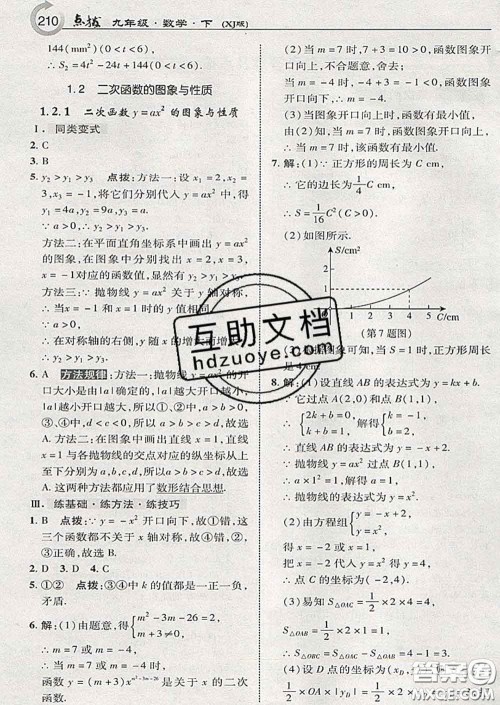 210 点拨 九年级·数学·下 (XJ版)
144(mm²)(0<t<6),
∴S₂=4t²-24t+144(0<t<6).
1.2 二次函数的图象与性质
1.2.1 二次函数y=ax²的图象与性质
Ⅰ. 同类变式
2. C
3. C
5. y₂>y₁>y₃ 点拨:方法一:设x₁=2,x₂=3,
x₃=-1,将它们分别代入y=ax²中,得
y₁=4a,y₂=9a,y₃=a.
∵a>0,∴y₂>y₁>y₃.
方法二:在平面直角坐标系中画出y=ax²
的图象,在图象中分别找出x=2,x=3,
x=-1对应的函数值,显然有y₂>y₁>y₃.
方法三:∵抛物线y=ax²关于y轴对称,
∴当x=1和x=-1时的y值相同.
∵a>0,
∴在对称轴的右侧,y随x的增大而增大.
∴y₂>y₁>y₃.
6. A 方法规律:方法一:抛物线y=ax²的开
口大小是由|a|决定的,|a|越大开口越小,
|a|越小开口越大,所以,a>b>0,
0>d>c,∴a>b>d>c,故选
A.方法二:在图象中画出直线x=1,直线
x=1与各抛物线的交点的纵坐标从上往
下分别为a,b,d,c,所以a>b>d>c,故选
A.这两种方法都应用了数形结合思想.
Ⅲ. 练基础·练方法·练技巧
1. B 点拨:∵y=x²开口向下,故①错,这
三个函数都不关于x轴对称,故③错,②,
④正确,故选B.
2. B 3. D 4. C
5. ①② 点拨:③④中k的值都是一正一负,
矛盾.
6. 解:(1)由题意,得{m²-3m-26=2,
(m+3≠0),
∴m=7或m=-4.
∴当m=7或m=-4时,
函数y=(m+3)x^{m²-3m-26}是关于x的二次
函数.
(2)当m=7时,函数图象开
口向上,不符合题意,舍去;
当m=-4时,函数图象开口向下.
∴m=-4.
(3)当图象开口向上时,函数有最小值.
由(2)可知当m=7时,函数图象
开口向上,故函数有最小值.
∴当m=7时,该函数有最小值.
7. 解:(1)∵正方形的周长为C cm,
∴它的边长为1/4 C cm.
∴S=1/16 C²(C>0).
(2)如图所示.
S/cm²
1
O 1 2 3 4 5 C/cm
(第7题图)
(3)根据图象可知,当S=1时,正方形周长
是4 cm.
8. 解:(1)设直线AB的表达式为y=kx+b.
∵它过点A(2,0)和点B(1,1),
∴{2k+b=0, k+b=1, 解得{k=-1, b=2.
∴直线AB的表达式为y=-x+2.
∵抛物线y=ax²过点B(1,1),
∴a×1²=1,解得a=1.
∴抛物线的表达式为y=x².
(2)由题意得{y=-x+2, y=x²,
得x=-2或x=1.
把x=-2代入y=x²得y=4.
∴点C的坐标为(-2,4).
(3)∵S△OAC=1/2×2×4=4,
S△OAB=1/2×2×1=1,
∴S△OBC=S△OAC-S△OAB=3.
(4)设D点的坐标为(x_D,
∴1/2×OA×|y_D|=1/2×2×
互助文档
hdzuoye.com
答案圈
MXQE.COM